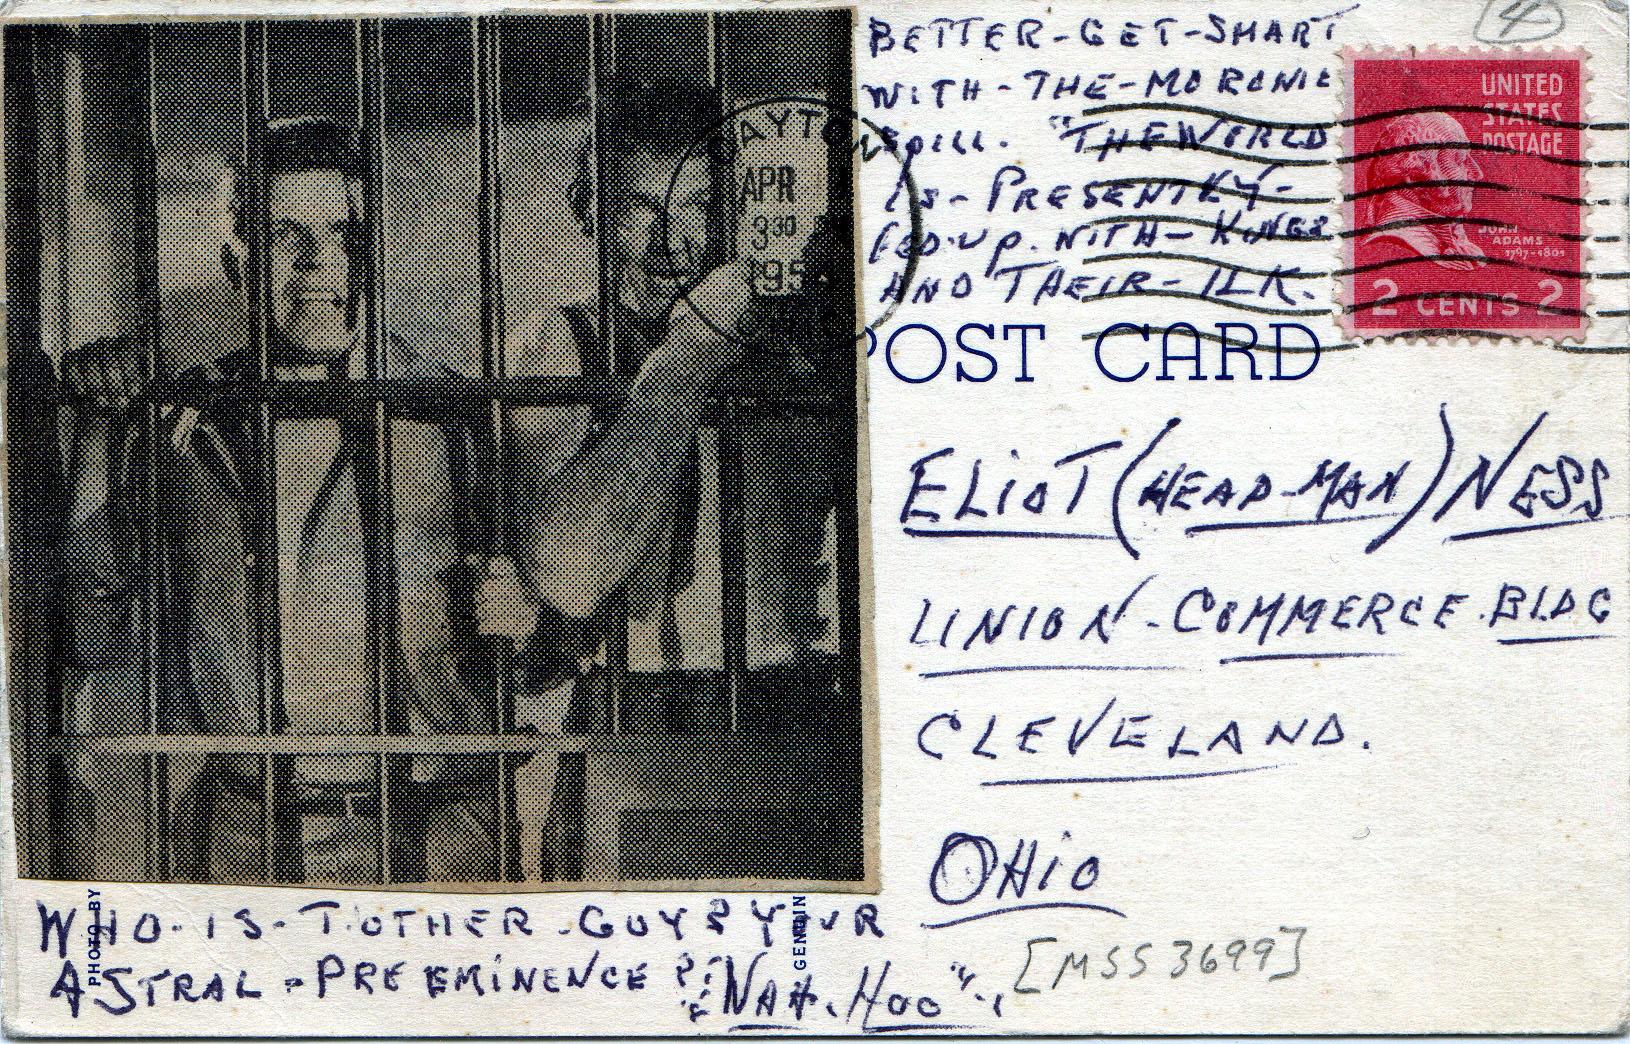 BETTER-GET-SMART
WITH-THE-MORONIC
SPILL. "THE WORLD
IS-PRESENTLY-
FED-UP. WITH-KINGS
AND THEIR-ILK.
UNITED
STATES
POSTAGE
JOHN
ADAMS
1797-1801
2 CENTS 2
DAYTO
APR
3 30
195
POST CARD
ELIOT (HEAD-MAN) NESS
UNION-COMMERCE.BLDG
CLEVELAND.
OHIO
[MSS 3699]
WHO-IS-T'OTHER-GUY? YOUR
ASTRAL-PREEMINENCE?
"NAH.HOO"
PHOTO BY
GENUIN
4